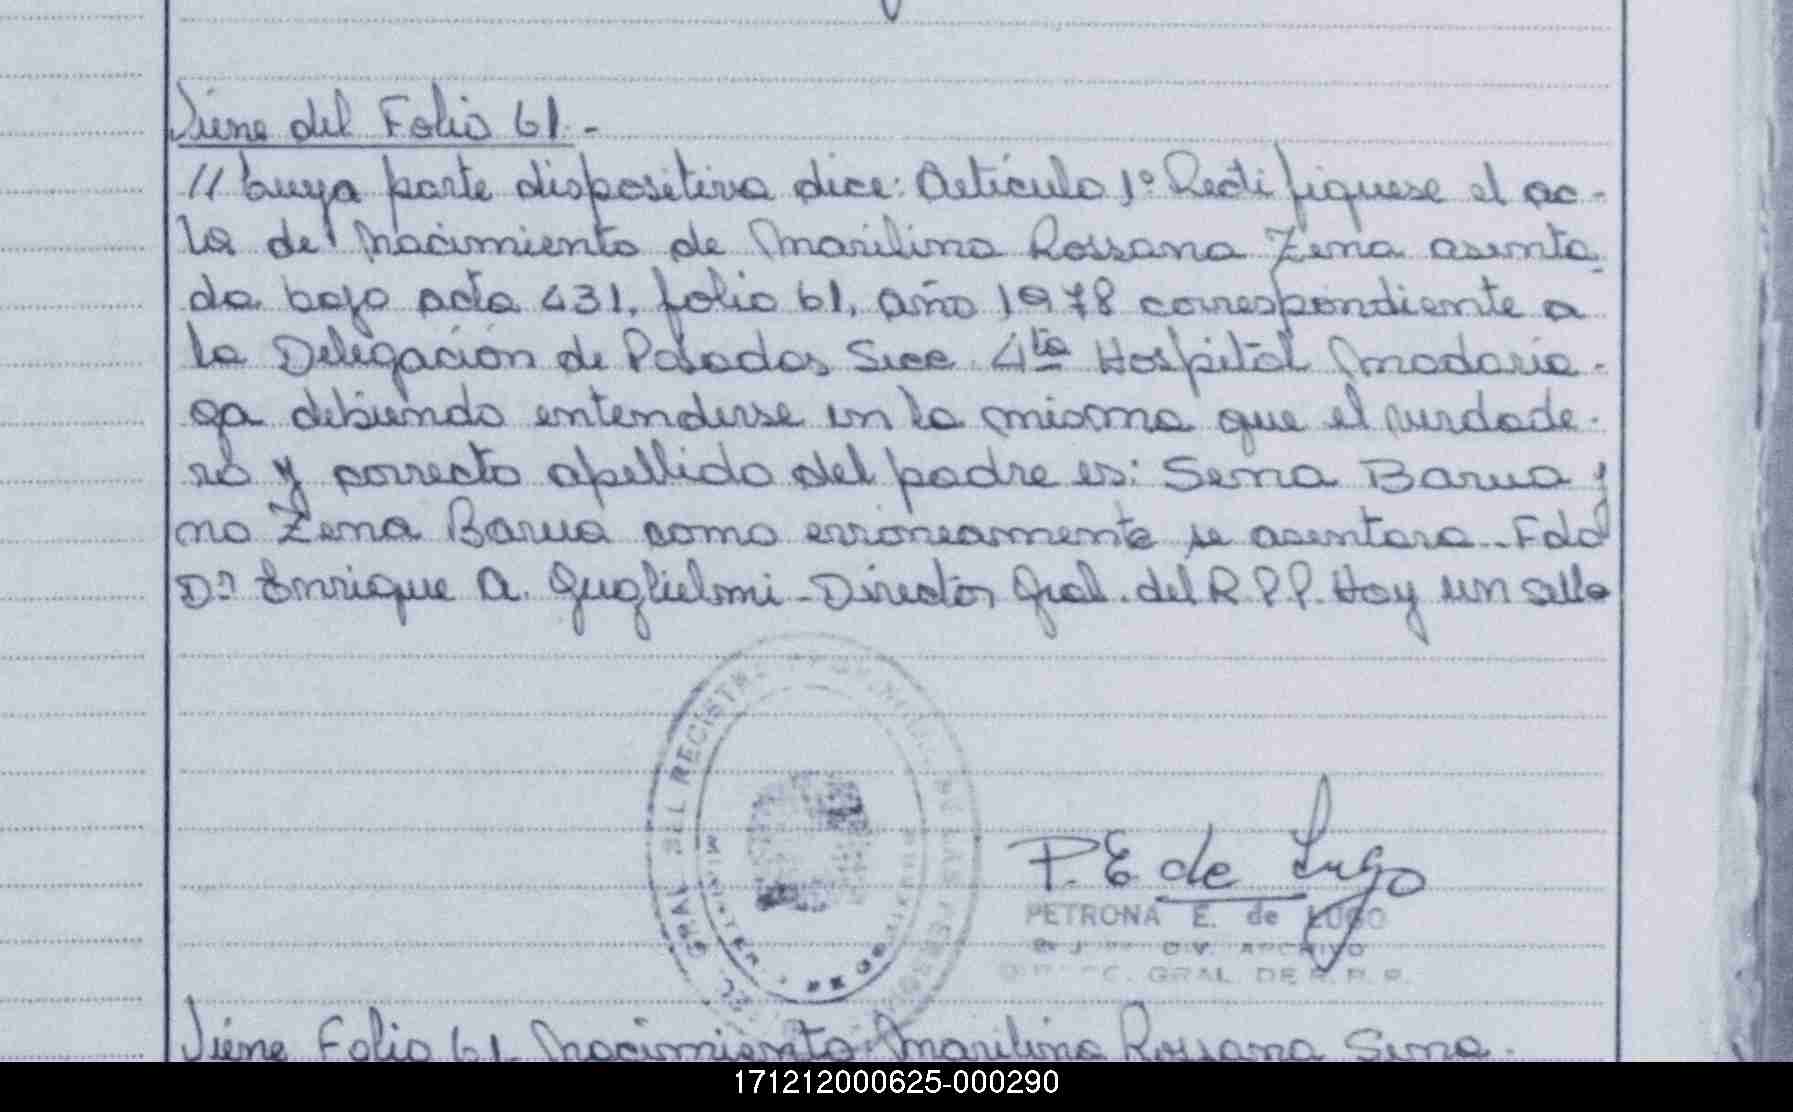 Viene del Folio 61.-
// Cuya parte dispositiva dice: Artículo 1º Rectifiquese el ac-
ta de Nacimiento de Marilina Rossana Zena asenta-
da bajo acta 431, folio 61, año 1978 correspondiente a
la Delegación de Posadas Secc. 4ta Hospital Madaria-
ga debiendo entenderse en la misma que el verdade-
ro y correcto apellido del padre es: Sena Barua y
no Zena Barua como erróneamente se asentara.- Fdo
Dr Enrique A. Guglielmi - Director Gral. del R.P.P. Hay un sello
GRAL DEL REGISTRO PROVINCIAL DE LAS PERSONAS
P. E. de Lugo
PETRONA E. de LUGO
DIV. ARCHIVO
GRAL. DE R. P. P.
Viene Folio 61 Nacimiento: Marilina Rossana Sena.
171212000625-000290